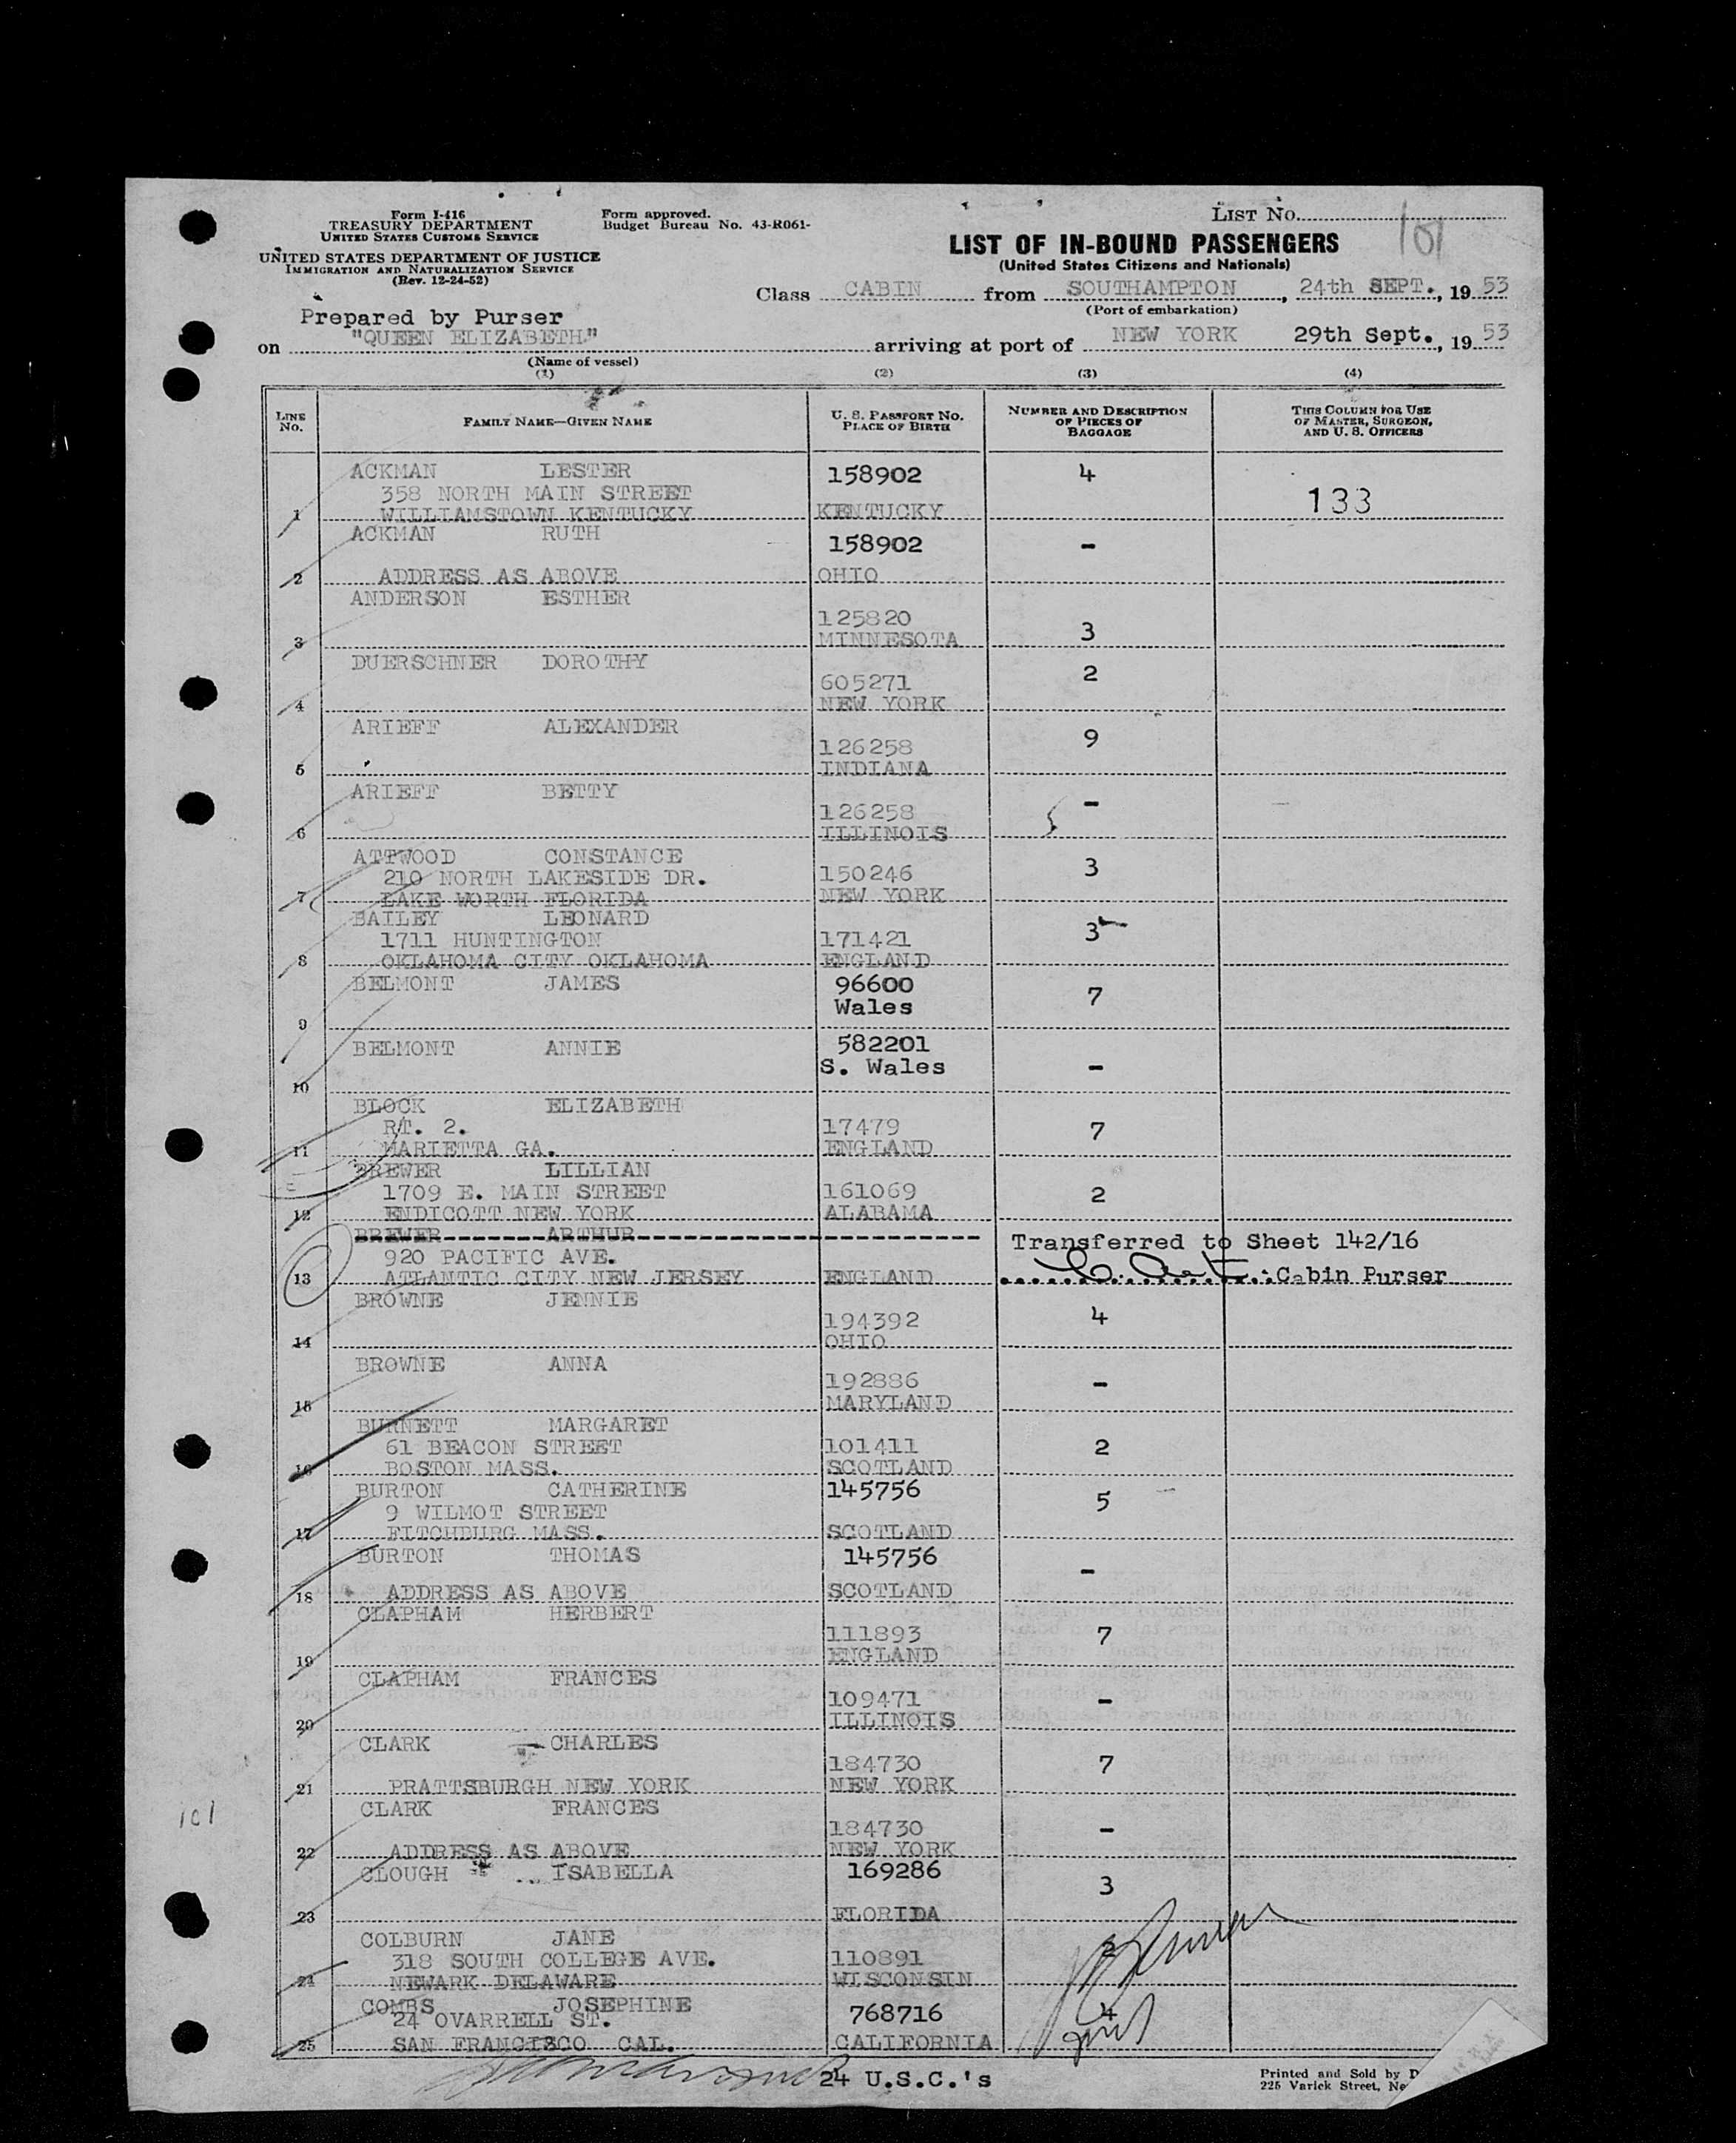 Form I-416
TREASURY DEPARTMENT
UNITED STATES CUSTOMS SERVICE
UNITED STATES DEPARTMENT OF JUSTICE
IMMIGRATION AND NATURALIZATION SERVICE
(Rev. 12-24-52)
Form approved.
Budget Bureau No. 43-R061-
LIST No.
101
LIST OF IN-BOUND PASSENGERS
(United States Citizens and Nationals)
Class CABIN from SOUTHAMPTON, 24th SEPT., 1953
(Port of embarkation)
Prepared by Purser
on "QUEEN ELIZABETH" arriving at port of NEW YORK 29th Sept., 1953
(Name of vessel)
(1) (2) (3) (4)
LINE No. FAMILY NAME—GIVEN NAME U. S. PASSPORT No. PLACE OF BIRTH NUMBER AND DESCRIPTION OF PIECES OF BAGGAGE THIS COLUMN FOR USE OF MASTER, SURGEON, AND U. S. OFFICERS
ACKMAN LESTER 158902 4
358 NORTH MAIN STREET 133
1 WILLIAMSTOWN KENTUCKY KENTUCKY
ACKMAN RUTH 158902 -
2 ADDRESS AS ABOVE OHIO
ANDERSON ESTHER
125820
3 MINNESOTA 3
DUERSCHNER DOROTHY 2
605271
4 NEW YORK
ARIEFF ALEXANDER 9
126258
5 INDIANA
ARIEFF BETTY -
126258
6 ILLINOIS
ATTWOOD CONSTANCE 3
210 NORTH LAKESIDE DR. 150246
7 LAKE WORTH FLORIDA NEW YORK
BAILEY LEONARD 3
1711 HUNTINGTON 171421
8 OKLAHOMA CITY OKLAHOMA ENGLAND
BELMONT JAMES 96600 7
Wales
9
BELMONT ANNIE 582201
S. Wales -
10
BLOCK ELIZABETH
RT. 2. 17479 7
11 MARIETTA GA. ENGLAND
BREWER LILLIAN
1709 E. MAIN STREET 161069 2
12 ENDICOTT NEW YORK ALABAMA
BREWER ARTHUR Transferred to Sheet 142/16
920 PACIFIC AVE.
13 ATLANTIC CITY NEW JERSEY ENGLAND Cabin Purser
BROWNE JENNIE 4
194392
14 OHIO
BROWNE ANNA -
192886
15 MARYLAND
BURNETT MARGARET
61 BEACON STREET 101411 2
16 BOSTON MASS. SCOTLAND
BURTON CATHERINE 145756 5
9 WILMOT STREET
17 FITCHBURG MASS. SCOTLAND
BURTON THOMAS 145756 -
18 ADDRESS AS ABOVE SCOTLAND
CLAPHAM HERBERT
111893 7
19 ENGLAND
CLAPHAM FRANCES
109471 -
20 ILLINOIS
CLARK CHARLES
184730 7
21 PRATTSBURGH NEW YORK NEW YORK
CLARK FRANCES
184730 -
22 ADDRESS AS ABOVE NEW YORK
CLOUGH ISABELLA 169286 3
23 FLORIDA
COLBURN JANE
318 SOUTH COLLEGE AVE. 110891
24 NEWARK DELAWARE WISCONSIN
COMBS JOSEPHINE 768716 4
24 OVARRELL ST.
25 SAN FRANCISCO CAL. CALIFORNIA
24 U.S.C.'s
Printed and Sold by
225 Varick Street,
101